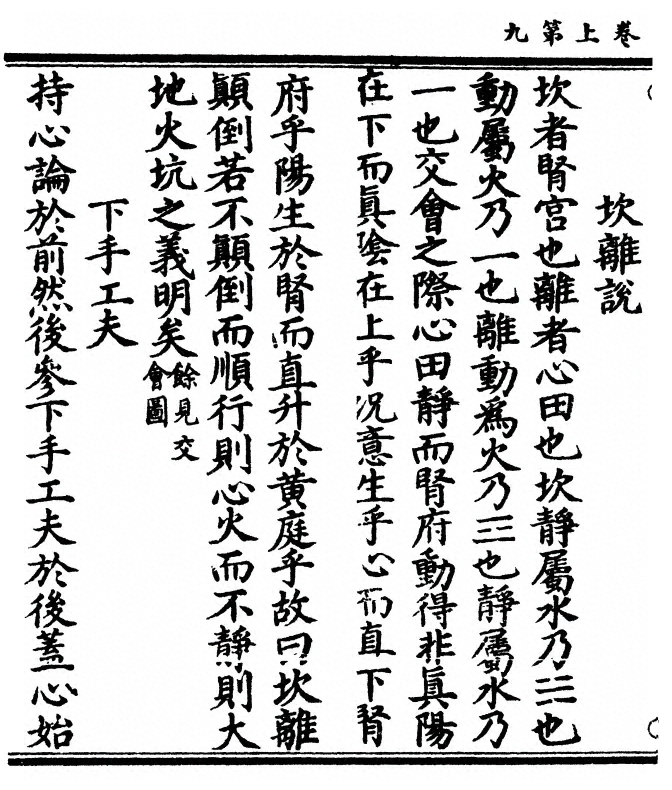 卷上第九
坎離說
坎者腎宫也離者心田也坎靜屬水乃☵也
動屬火乃一也離動爲火乃☲也靜屬水乃
一也交會之際心田靜而腎府動得非眞陽
在下而眞陰在上乎况意生乎心而直下腎
府乎陽生於腎而直升於黄庭乎故曰坎離
顚倒若不顚倒而順行則心火而不靜則大
地火坑之義明矣餘見交
會圖
下手工夫
持心論於前然後參下手工夫於後蓋心始